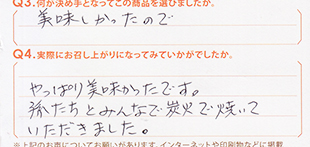 Q3.何が決め手となってこの商品を選びましたか。
美味しかったので
Q4.実際にお召し上がりになってみていかがでしたか。
やっぱり美味かったです。
孫たちとみんなで炭火で焼いて
いただきました。
※上記のお声についてお願いがあります。インターネットや印刷物などに掲載